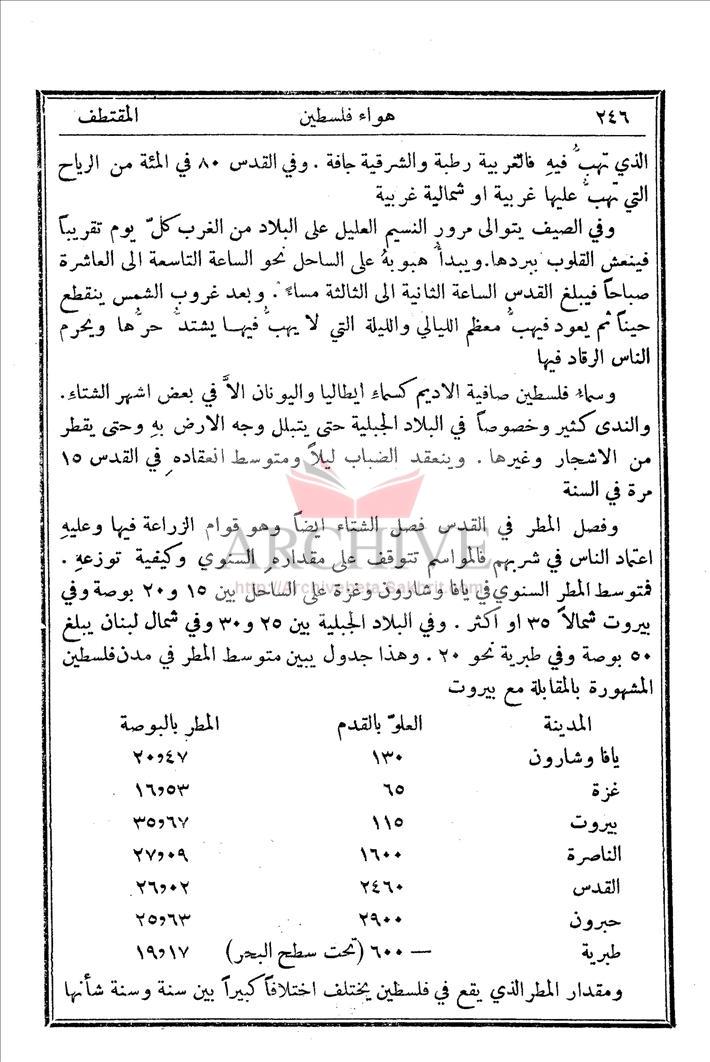 ٢٤٦ هواء فلسطين المقتطف
الذي تهبُّ فيهِ فالغربية رطبة والشرقية جافة . وفي القدس ٨٠ في المئة من الرياح
التي تهبُّ عليها غربية او شمالية غربية
وفي الصيف يتوالى مرور النسيم العليل على البلاد من الغرب كلّ يوم تقريباً
فينعش القلوب ببردها. ويبدأُ هبوبهُ على الساحل نحو الساعة التاسعة الى العاشرة
صباحاً فيبلغ القدس الساعة الثانية الى الثالثة مساءً . وبعد غروب الشمس ينقطع
حيناً ثم يعود فيهبُّ معظم الليالي والليلة التي لا يهبُّ فيهــا يشتدُّ حرُّها ويحرم
الناس الرقاد فيها
وسماءُ فلسطين صافية الاديم كسماءِ ايطاليا واليونان الاَّ في بعض اشهر الشتاءِ.
والندى كثير وخصوصاً في البلاد الجبلية حتى يتبلل وجه الارض بهِ وحتى يقطر
من الاشجار وغيرها . وينعقد الضباب ليلاً ومتوسط انعقادهِ في القدس ١٥
مرة في السنة
وفصل المطر في القدس فصل الشتاء ايضاً وهو قوام الزراعة فيها وعليهِ
اعتماد الناس في شربهم فالمواسم تتوقف على مقدارهِ السنوي وكيفية توزعهِ .
فمتوسط المطر السنوي في يافا وشارون وغزة على الساحل بين ١٥ و٢٠ بوصة وفي
بيروت شمالاً ٣٥ او اكثر . وفي البلاد الجبلية بين ٢٥ و٣٠ وفي شمال لبنان يبلغ
٥٠ بوصة وفي طبرية نحو ٢٠ . وهذا جدول يبين متوسط المطر في مدن فلسطين
المشهورة بالمقابلة مع بيروت
المدينة العلوّ بالقدم المطر بالبوصة
يافا وشارون ١٣٠ ٢٠و٤٧
غزة ٦٥ ١٦و٥٣
بيروت ١١٥ ٣٥و٦٧
الناصرة ١٦٠٠ ٢٧و٠٩
القدس ٢٤٦٠ ٢٦و٠٢
حبرون ٢٩٠٠ ٢٥و٦٣
طبرية — ٦٠٠ (تحت سطح البحر) ١٩و١٧
ومقدار المطر الذي يقع في فلسطين يختلف اختلافاً كبيراً بين سنة وسنة شأنها
ARCHIVE
http://Archivebeta.Sakhrit.com